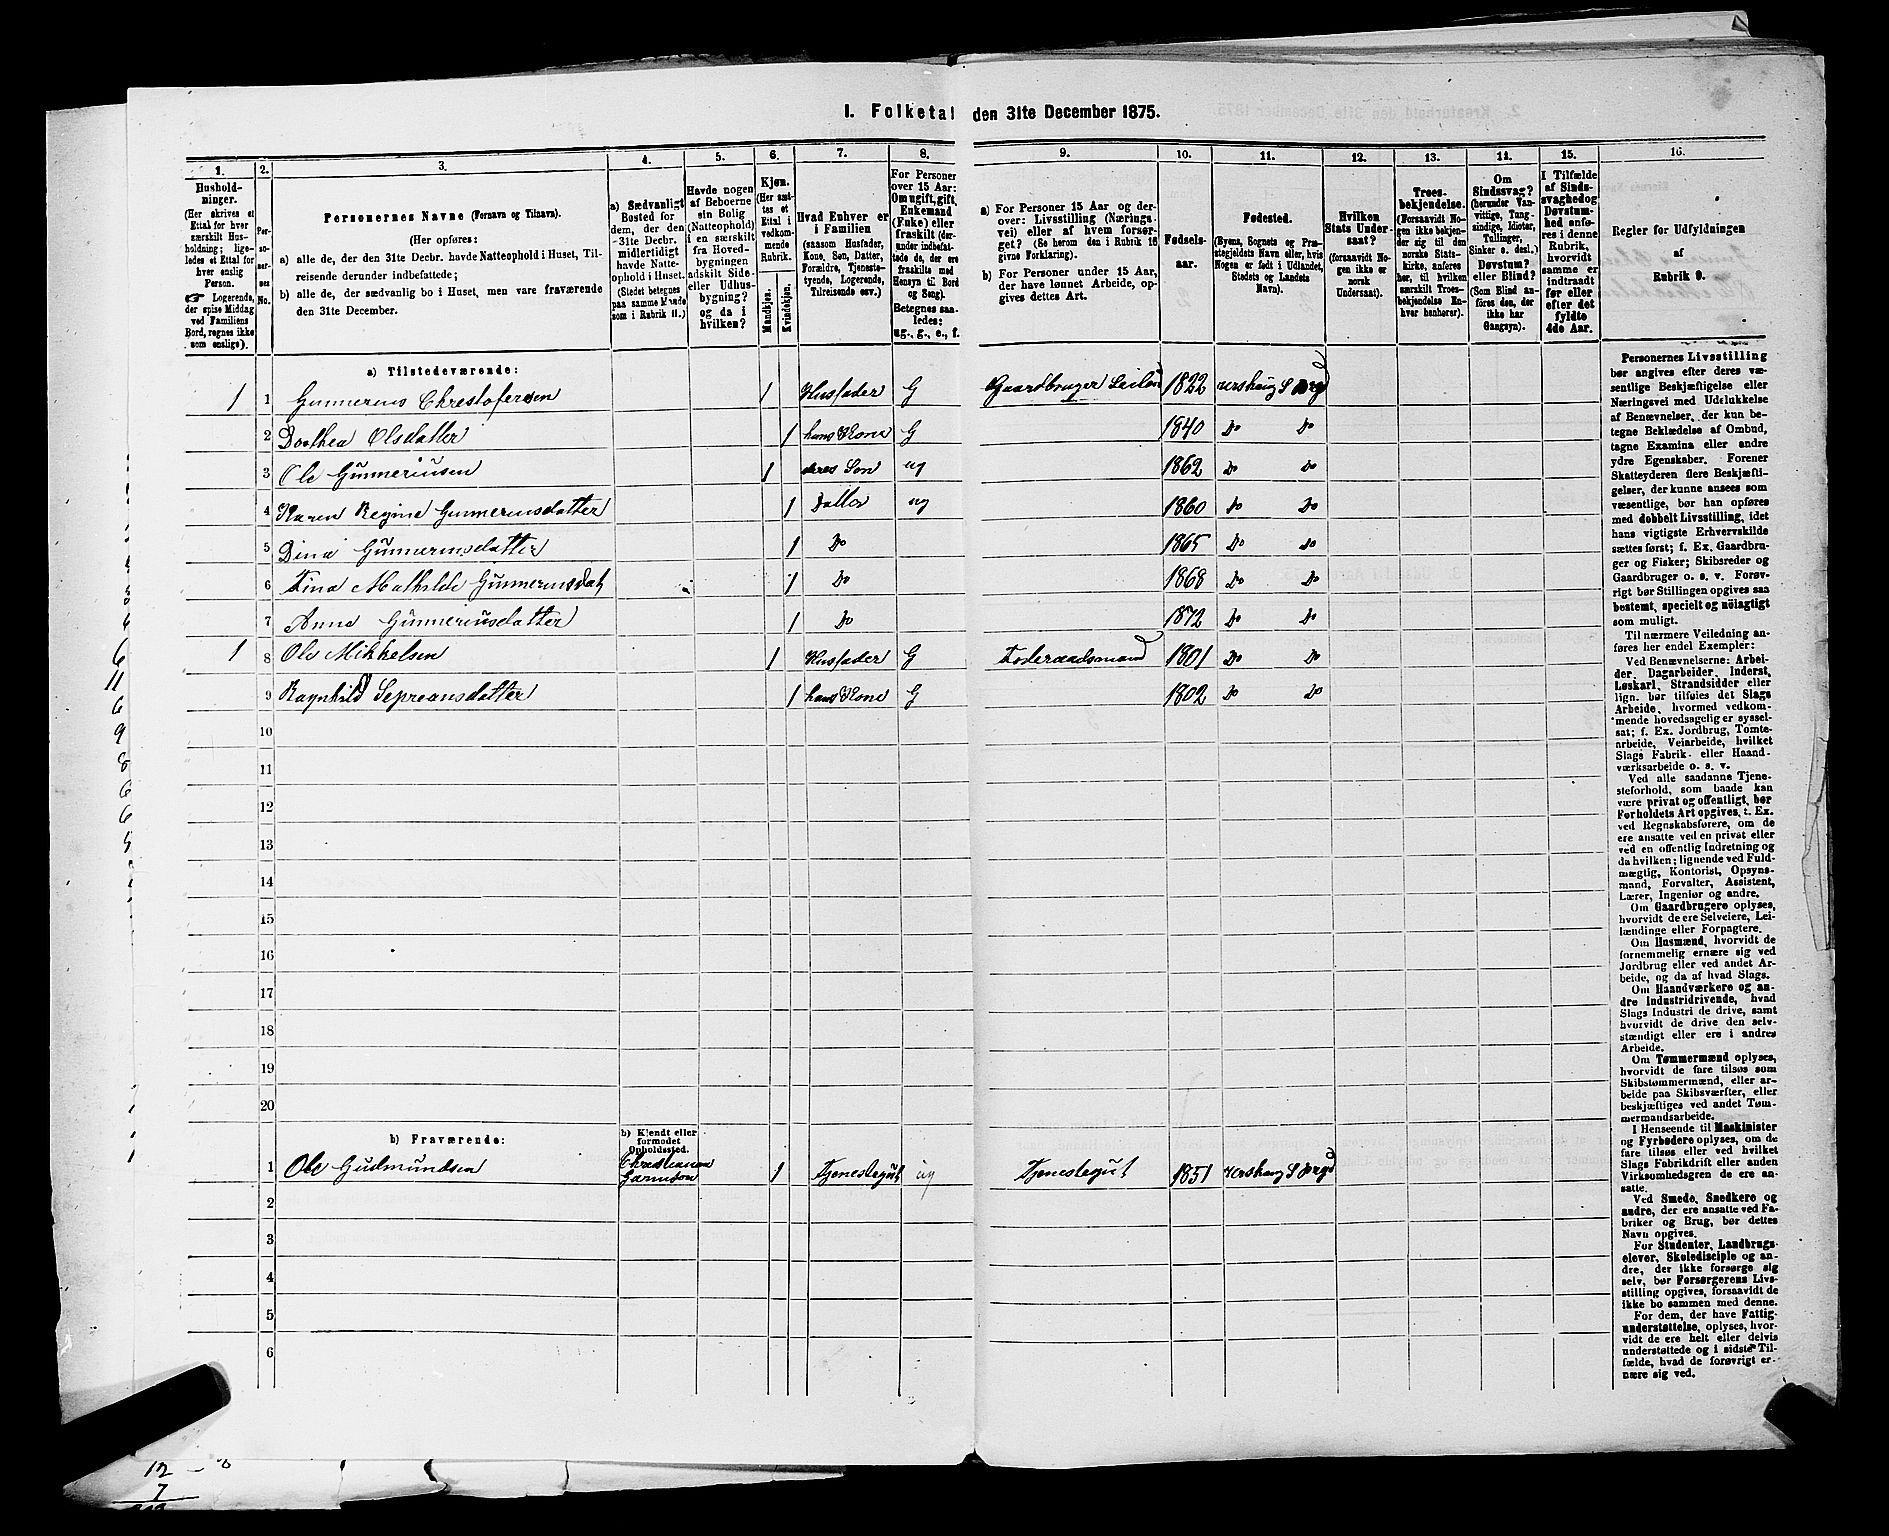 I. Folketal den 31te December 1875.
1.
2.
3.
4.
5.
6.
7.
8.
9.
10.
11.
12.
13.
14.
15.
16.
Hushold-
ninger.
(Her skrives et
Ettal for hver
særskilt Hus-
holdning; lige-
ledes et Ettal for
hver enslig
Person.
☞ Logerende,
der spise Middag
ved Familiens
Bord, regnes ikke
som enslige).
Per-
so-
nernes
No.
Personernes Navne (Fornavn og Tilnavn).
(Her opføres:
a) alle de, der den 31te Decbr. havde Natteophold i Huset, Til-
reisende derunder indbefattede;
b) alle de, der sædvanlig bo i Huset, men vare fraværende
den 31te December.
a) Sædvanligt
Bosted for
dem, der den
31te Decbr.
midlertidigt
havde Natte-
ophold i Huset.
(Stedet betegnes
paa samme Maade
som i Rubrik 11.)
Havde nogen
af Beboerne
sin Bolig
(Natteophold)
i en særskilt
fra Hoved-
bygningen
adskilt Side-
eller Udhus-
bygning?
og da i
hvilken?
Kjøn.
(Her sæt-
tes et
Ettal i
vedkom-
mende
Rubrik.
Mandkjøn.
Kvindekjøn.
Hvad Enhver er
i Familien
(saasom Husfader,
Kone, Søn, Datter,
Forældre, Tjeneste-
tyende, Logerende,
Tilreisende osv.)
For Personer
over 15 Aar:
Om ugift, gift,
Enkemand
(Enke) eller
fraskilt (der-
under indbefat-
tede de, der ere
fraskilte med
Hensyn til Bord
og Seng).
Betegnes saa-
ledes:
ug., g., e., f.
a) For Personer 15 Aar og der-
over: Livsstilling (Nærings-
vei) eller af hvem forsør-
get? (Se herom den i Rubrik 16
givne Forklaring).
b) For Personer under 15 Aar,
der have lønnet Arbeide, op-
gives dettes Art.
Fødsels-
aar.
Fødested.
(Byens, Sognets og Præ-
stegjeldets Navn eller, hvis
Nogen er født i Udlandet,
Stedets og Landets
Navn).
Hvilken
Stats Under-
saat?
(forsaavidt No-
gen ikke er
norsk
Undersaat).
Troes-
bekjendelse.
(Forsaavidt No-
gen ikke bekjen-
der sig til den
norske Stats-
kirke, anføres
her, til hvilken
særskilt Troes-
bekjendelse En-
hver henhører).
Om
Sindssvag?
(herunder Van-
vittige, Tung-
sindige, Idioter,
Tullinger,
Sinker o. desl.)
Døvstum?
eller Blind?
(Som Blind an-
føres den, der
ikke har
Gangsyn).
I Tilfælde
af Sinds-
svaghed og
Døvstum-
hed anfø-
res i denne
Rubrik,
hvorvidt
samme er
indtraadt
før eller
efter det
fyldte
4de Aar.
Regler for Udfyldningen
af
Rubrik 9.
a) Tilstedeværende:
1 1 Gunnerius Christofersen 1 Husfader G Gaardbruger Leilend 1822 Urskoug S Urgd
2 Dorthea Olsdatter 1 hans Kone G 1840 Do Do
3 Ole Gunneriusen 1 deres Søn ug 1862 Do Do
4 Karen Regine Gunneriusdatter 1 Datter ug 1860 Do Do
5 Dina Gunneriusdatter 1 Do 1865 Do Do
6 Tina Mathilde Gunneriusdat 1 Do 1868 Do Do
7 Anna Gunneriusdatter 1 Do 1872 Do Do
1 8 Ole Mikkelsen 1 Husfader G Foderaadsmand 1801 Do Do
9 Ragnhild Sepreansdatter 1 hans Kone G 1802 Do Do
10
11
12
13
14
15
16
17
18
19
20
b) Fraværende:
b) Kjendt eller
formodet
Opholdssted.
1 Ole Gudmundsen Christiania Garnison 1 Tjenestegut ug Tjenestegut 1851 Urskoug S Urgd
2
3
4
5
6
Personernes Livsstilling
bør angives efter deres væ-
sentlige Beskjæftigelse eller
Næringsvei med Udelukkelse
af Benævnelser, der kun be-
tegne Beklædelse af Ombud,
tagne Examina eller andre
ydre Egenskaber. Forener
Skatteyderen flere Beskjæfti-
gelser, der kunne ansees som
væsentlige, bør han opføres
med dobbelt Livsstilling, idet
hans vigtigste Erhvervskilde
sættes først; f. Ex. Gaardbru-
ger og Fisker; Skibsreder og
Gaardbruger o. s. v. Forøv-
rigt bør Stillingen opgives saa
bestemt, specielt og nöiagtigt
som muligt.
Til nærmere Veiledning an-
føres her endel Exempler:
Ved Benævnelserne: Arbei-
der, Dagarbeider, Inderst,
Løskarl, Strandsidder eller
lign. bør tilføies det Slags
Arbeide, hvormed vedkom-
mende hovedsagelig er syssel-
sat; f. Ex. Jordbrug, Tomte-
arbeide, Veiarbeide, hvilket
Slags Fabrik- eller Haand-
værksarbeide o. s. v.
Ved alle saadanne Tjene-
steforhold, som baade kan
være privat og offentligt, bør
Forholdets Art opgives, t. Ex.
ved Regnskabsførere, om de
ere ansatte ved en privat eller
ved en offentlig Indretning og
da hvilken; lignende ved Fuld-
mægtig, Kontorist, Opsyns-
mand, Forvalter, Assistent,
Lærer, Ingeniør og andre.
Om Gaardbrugere oplyses,
hvorvidt de ere Selveiere, Lei-
lændinge eller Forpagtere.
Om Husmænd, hvorvidt de
fornemmelig ernære sig ved
Jordbrug eller ved andet Ar-
beide, og da af hvad Slags.
Om Haandværkere og an-
dre Industridrivende, hvad
Slags Industri de drive, samt
hvorvidt de drive den selv-
stændigt eller ere i andres
Arbeide.
Om Tømmermænd oplyses,
hvorvidt de fare tilsøs som
Skibstømmermænd, eller ar-
beide paa Skibsværfter, eller
beskjæftiges ved andet Tøm-
mermandsarbeide.
I Henseende til Maskinister
og Fyrbødere oplyses, om de
fare tilsøs eller ved hvilket
Slags Fabrikdrift eller anden
Virksomhedsgren de ere an-
satte.
Ved Smede, Snedkere og
andre, der ere ansatte ved Fa-
briker og Brug, bør dettes
Navn opgives.
For Studenter, Landbrugs-
elever, Skoledisciple og an-
dre, der ikke forsørge sig
selv, bør Forsørgerens Livs-
stilling opgives, forsaavidt de
ikke bo sammen med denne.
For dem, der have Fattig-
understøttelse, oplyses, hvor-
vidt de ere helt eller delvis
understøttede og i sidste Til-
fælde, hvad de forøvrigt er-
nære sig ved.
6
11
6
9
8
6
6
12
7